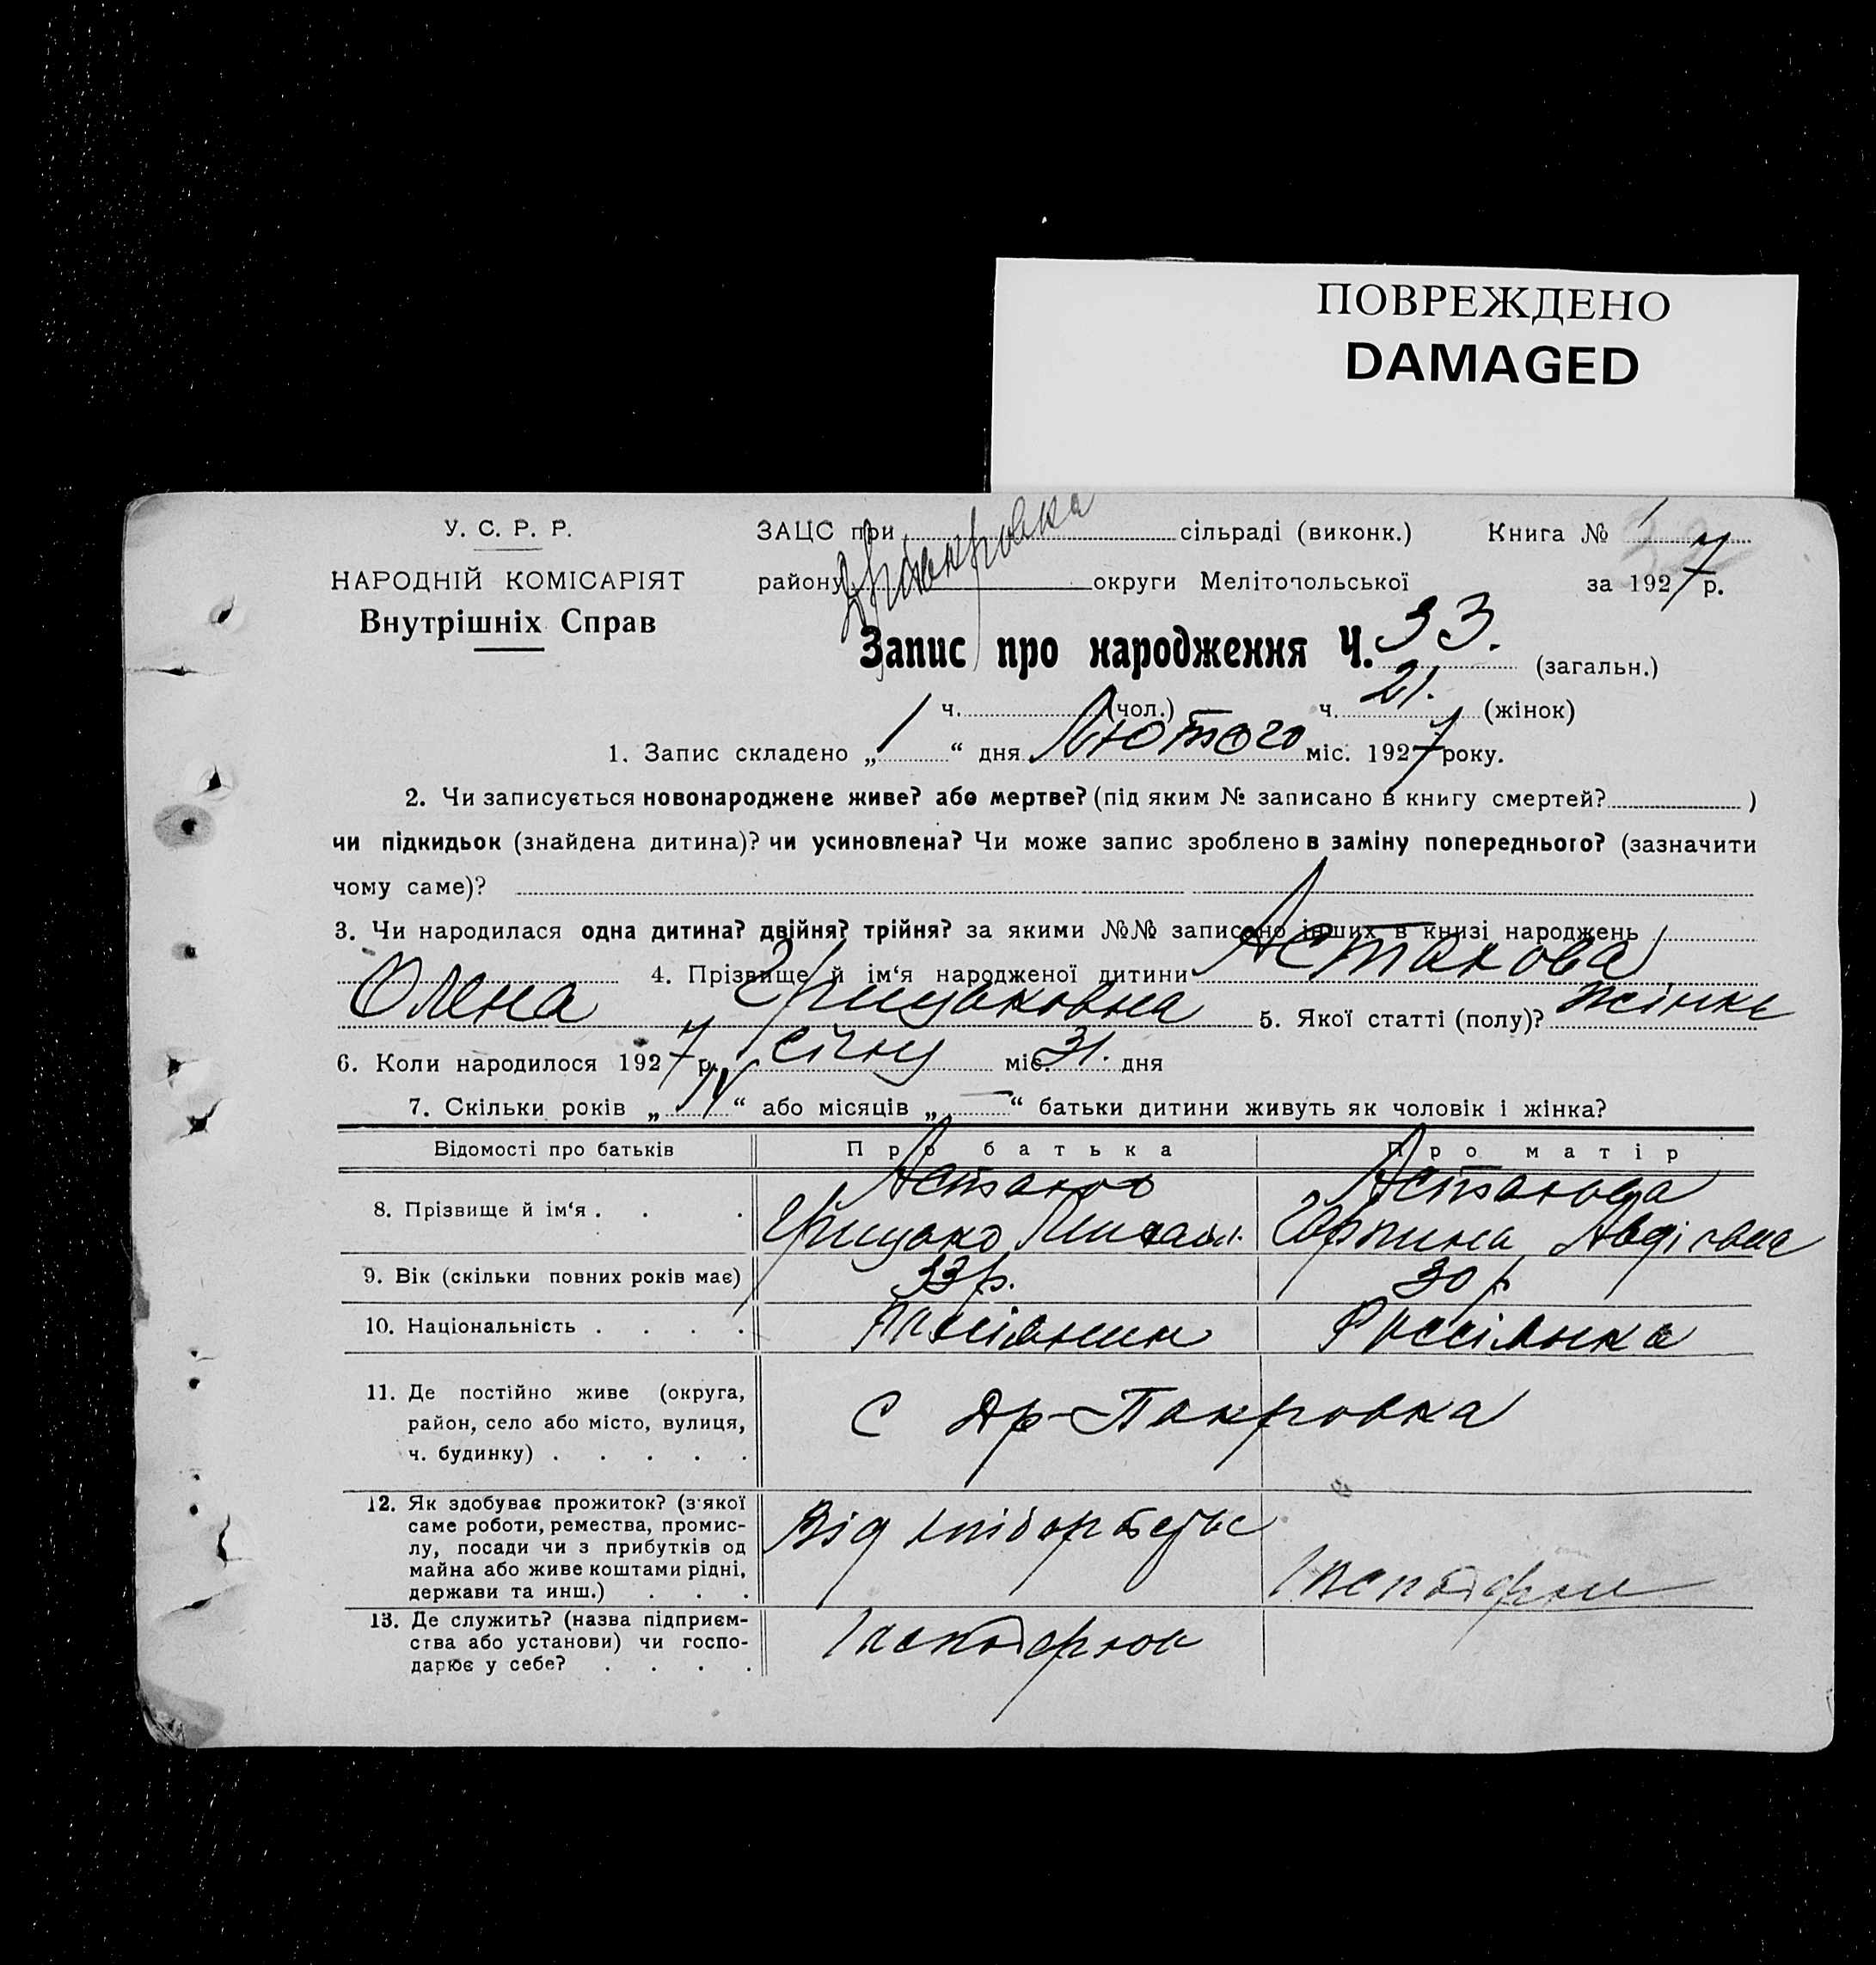 ПОВРЕЖДЕНО
DAMAGED
У. С. Р. Р.
НАРОДНІЙ КОМІСАРІЯТ
Внутрішніх Справ
ЗАЦС при сільраді (виконк.) Книга № 1
району округи Мелітопольської за 1927 р.
Запис про народження Ч. 33. (загальн.)
ч. (чол.) ч. 21. (жінок)
1. Запис складено „ 1 “ дня Лютого міс. 1927 року.
2. Чи записується новонароджене живе? або мертве? (під яким № записано в книгу смертей? )
чи підкидьок (знайдена дитина)? чи усиновлена? Чи може запис зроблено в заміну попереднього? (зазначити
чому саме)?
3. Чи народилася одна дитина? двійня? трійня? за якими №№ записано інших в книзі народжень
4. Прізвище й ім‘я народженої дитини Астахова
Олена Грицаковна 5. Якої статті (полу)? жінкь
6. Коли народилося 1927 р. січну міс. 31. дня
7. Скільки років „ “ або місяців „ — “ батьки дитини живуть як чоловік і жінка?
Відомості про батьків Про батька Про матір
8. Прізвище й ім‘я . . . Астахов Астахова
Грицако Михайл. Горпина Авдіевна
9. Вік (скільки повних років має) 33 р. 30 р.
10. Національність . . . . Россіянин Россіянка
11. Де постійно живе (округа,
район, село або місто, вулиця,
ч. будинку) . . . . .
С Др-Пакровка
12. Як здобуває прожиток? (з якої
саме роботи, ремества, промис-
лу, посади чи з прибутків од
майна або живе коштами рідні,
держави та инш.) . . .
Від
13. Де служить? (назва підприєм-
ства або установи) чи госпо-
дарює у себе? . . . .